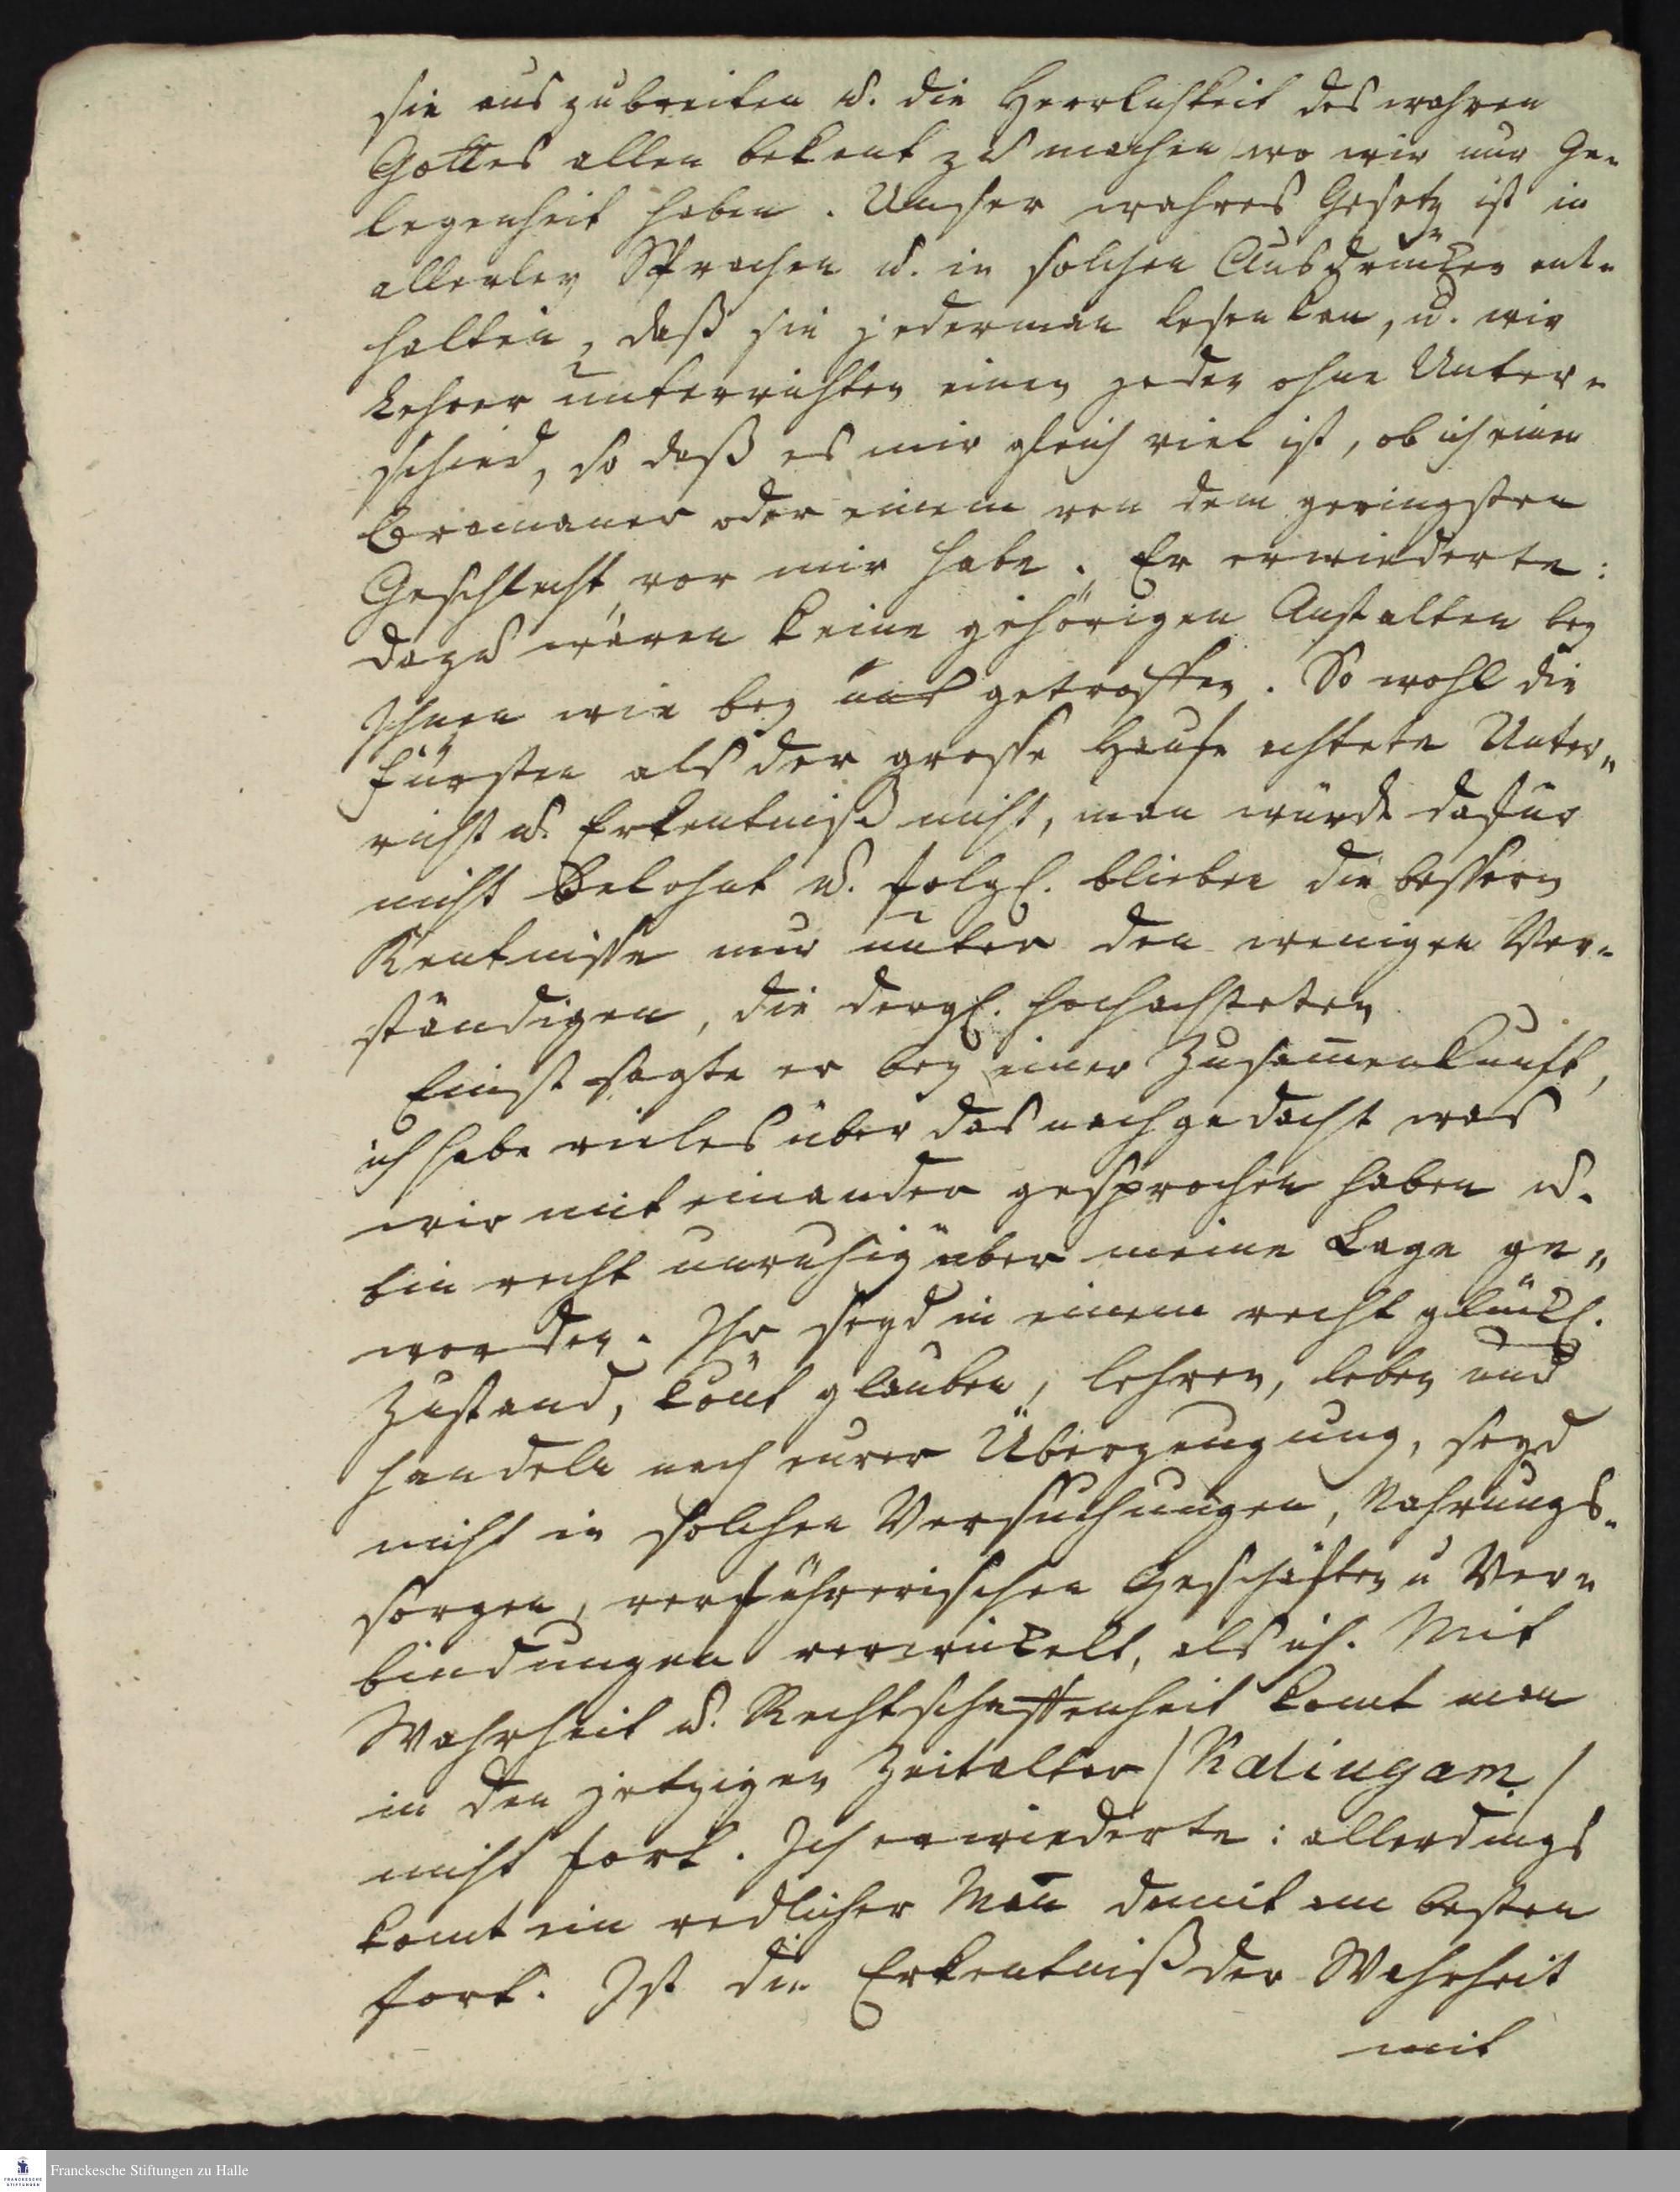 sie auszubreiten u. die Herrlichkeit des wahren
Gottes allen bekant zu machen wo wir nur Ge-
legenheit haben. Unser wahres Gesetz ist in
allerley Sprachen u. in solchen Ausdrücken ent-
halten, daß sie jederman lesen kan, u. wir
Lehrer unterrichten einen jeden ohne Unter-
schied, so daß es mir gleich viel ist, ob ich einen
Bramaner oder einem von dem geringsten
Geschlecht vor mir habe. Er erwiederte:
dazu wären keine gehörigen Anstalten bey
Ihnen wie bey uns getroffen. So wohl die
Fürsten als der grosse Haufe achtete Unter-
richt u. Erkentniß nicht, man würde dafür
nicht belohnt u. folgl. blieben die bessern
Kentnisse nur unter den wenigen Ver-
ständigen, die dergl. hochachteten
Einst sagte er bey einer Zusamenkunft,
ich habe vieles über das nachgedacht was
wir mit einander gesprochen haben u.
bin recht unruhig über meine Lage ge-
worden. Ihr seyd in einem recht glückl.
Zustand, könt glauben, lehren, leben und
handeln nach eurer Überzeugung, seyd
nicht in solchen Versuchungen, Nahrungs-
sorgen, verführerischen Geschäften u Ver-
bindungen verwickelt, als ich. Mit
Wahrheit u. Rechtschaffenheit komt man
in den jetzigen Zeitalter /Kaliugam/
nicht fort. Ich erwiederte: allerdings
komt ein redlicher Man damit am besten
fort. Ist die Erkentniß der Wahrheit
mit
Franckesche Stiftungen zu Halle
FRANCKESCHE
STIFTUNGEN